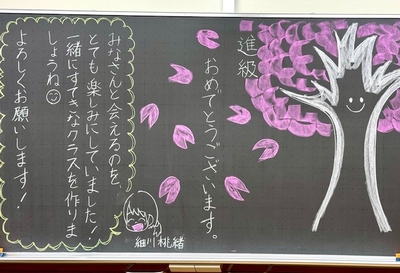 進級
おめでとうございます。
みなさんと会えるのを、
とても楽しみにしていました!
一緒にすてきなクラスを作りま
しょうね
よろしくお願いします!
細川桃緒